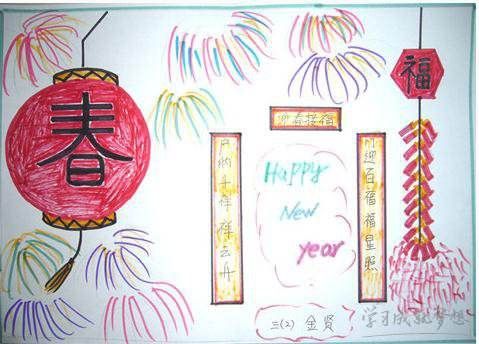 春
福
迎春接福
门迎百福福星照
户纳千祥祥云升
Happy
New
year
三(2) 金贤
学习成就梦想